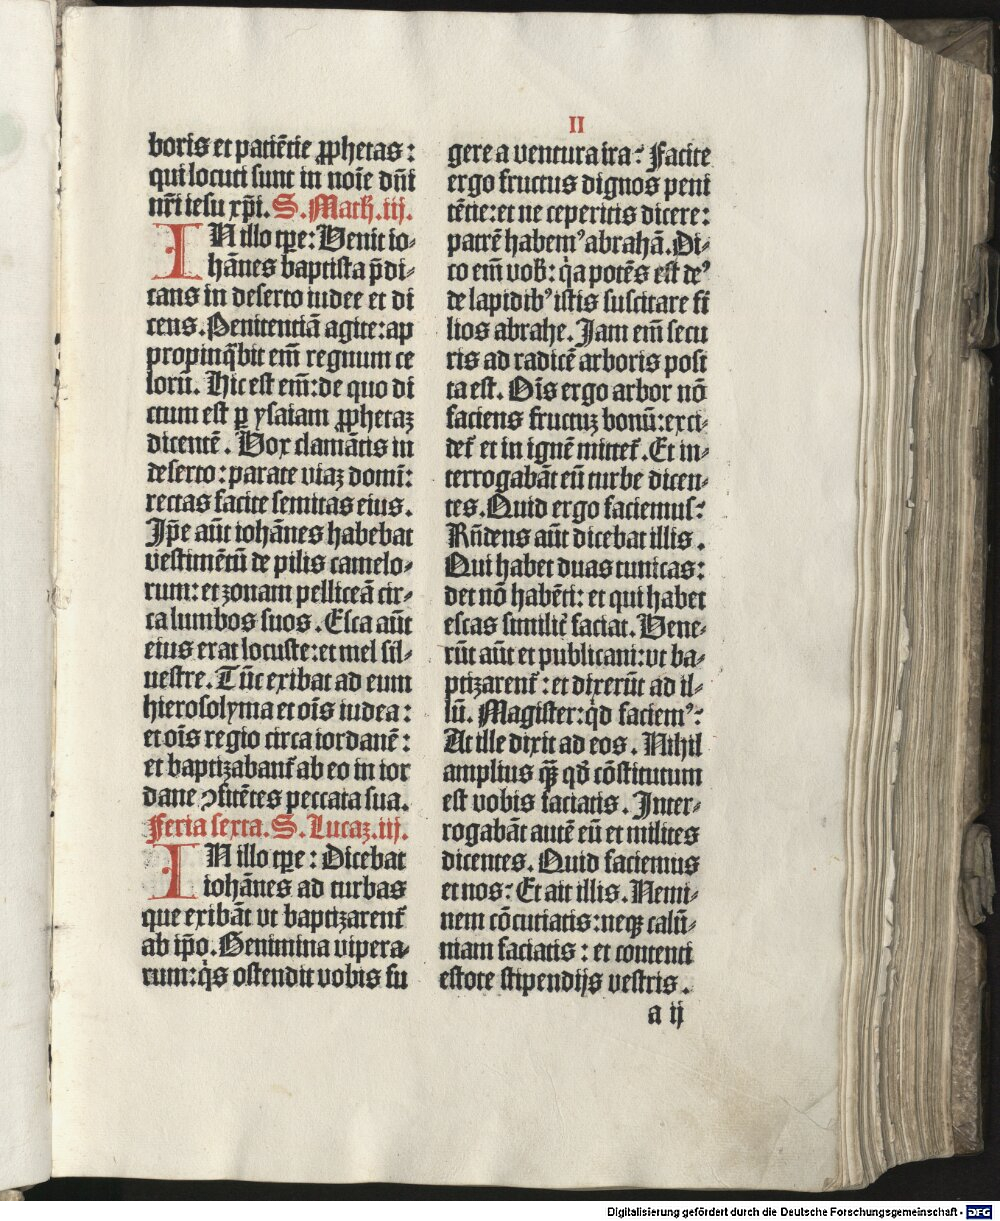 II
boris et patiētie ꝓphetas:
qui locuti sunt in noīe dn̄i
nr̄i iesu xp̄i. S. Math. iij.
IN illo tꝑe: Venit io-
hānes baptista p̄di-
cans in deserto iudee et di
cens. Penitentiā agite: ap
propinq̄bit em̄ regnum ce
lorū. Hic est em̄: de quo di
ctum est ꝑ ysaiam ꝓphetaꝫ
dicentē. Vox clamātis in
deserto: parate viaꝫ domī:
rectas facite semitas eius.
Ip̄e aūt iohānes habebat
vestimētū de pilis camelo-
rum: et zonam pelliceā cir-
ca lumbos suos. Esca aūt
eius erat locuste: et mel sil-
uestre. Tūc exibat ad eum
hierosolyma et oīs iudea:
et oīs regio circa iordanē:
et baptizabant᷑ ab eo in ior
dane ꝯfitētes peccata sua.
Feria sexta. S. Lucaꝫ. iij.
IN illo tꝑe: Dicebat
iohānes ad turbas
que exibāt vt baptizarent᷑
ab ip̄o. Genimina vipera-
rum: q̇s ostendit vobis fu
gere a ventura ira? Facite
ergo fructus dignos peni
tētie: et ne ceperitis dicere:
patrē habemꝰ abrahā. Di-
co em̄ vob̄: q̇a potēs est deꝰ
de lapidibꝰ istis suscitare fi
lios abrahe. Jam em̄ secu
ris ad radicē arboris posi
ta est. Oīs ergo arbor nō
faciens fructuꝫ bonū: exci-
det᷑ et in ignē mittet᷑. Et in-
terrogabāt eū turbe dicen-
tes. Quid ergo faciemus?
Rn̄dens aūt dicebat illis.
Qui habet duas tunicas:
det nō habēti: et qui habet
escas similit᷑ faciat. Vene-
rūt aūt et publicani: vt ba-
ptizarent᷑: et dixerūt ad il-
lū. Magister: qd̄ faciemꝰ?
At ille dixit ad eos. Nihil
amplius q̄ꝫ qd̄ cōstitutum
est vobis faciatis. Inter-
rogabāt autē eū et milites
dicentes. Quid faciemus
et nos? Et ait illis. Nemi-
nem cōcutiatis: neqꝫ calū-
niam faciatis: et contenti
estote stipendijs vestris.
a ij
Digitalisierung gefördert durch die Deutsche Forschungsgemeinschaft - DFG